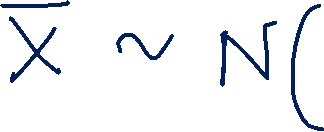 X̅ ~ N(